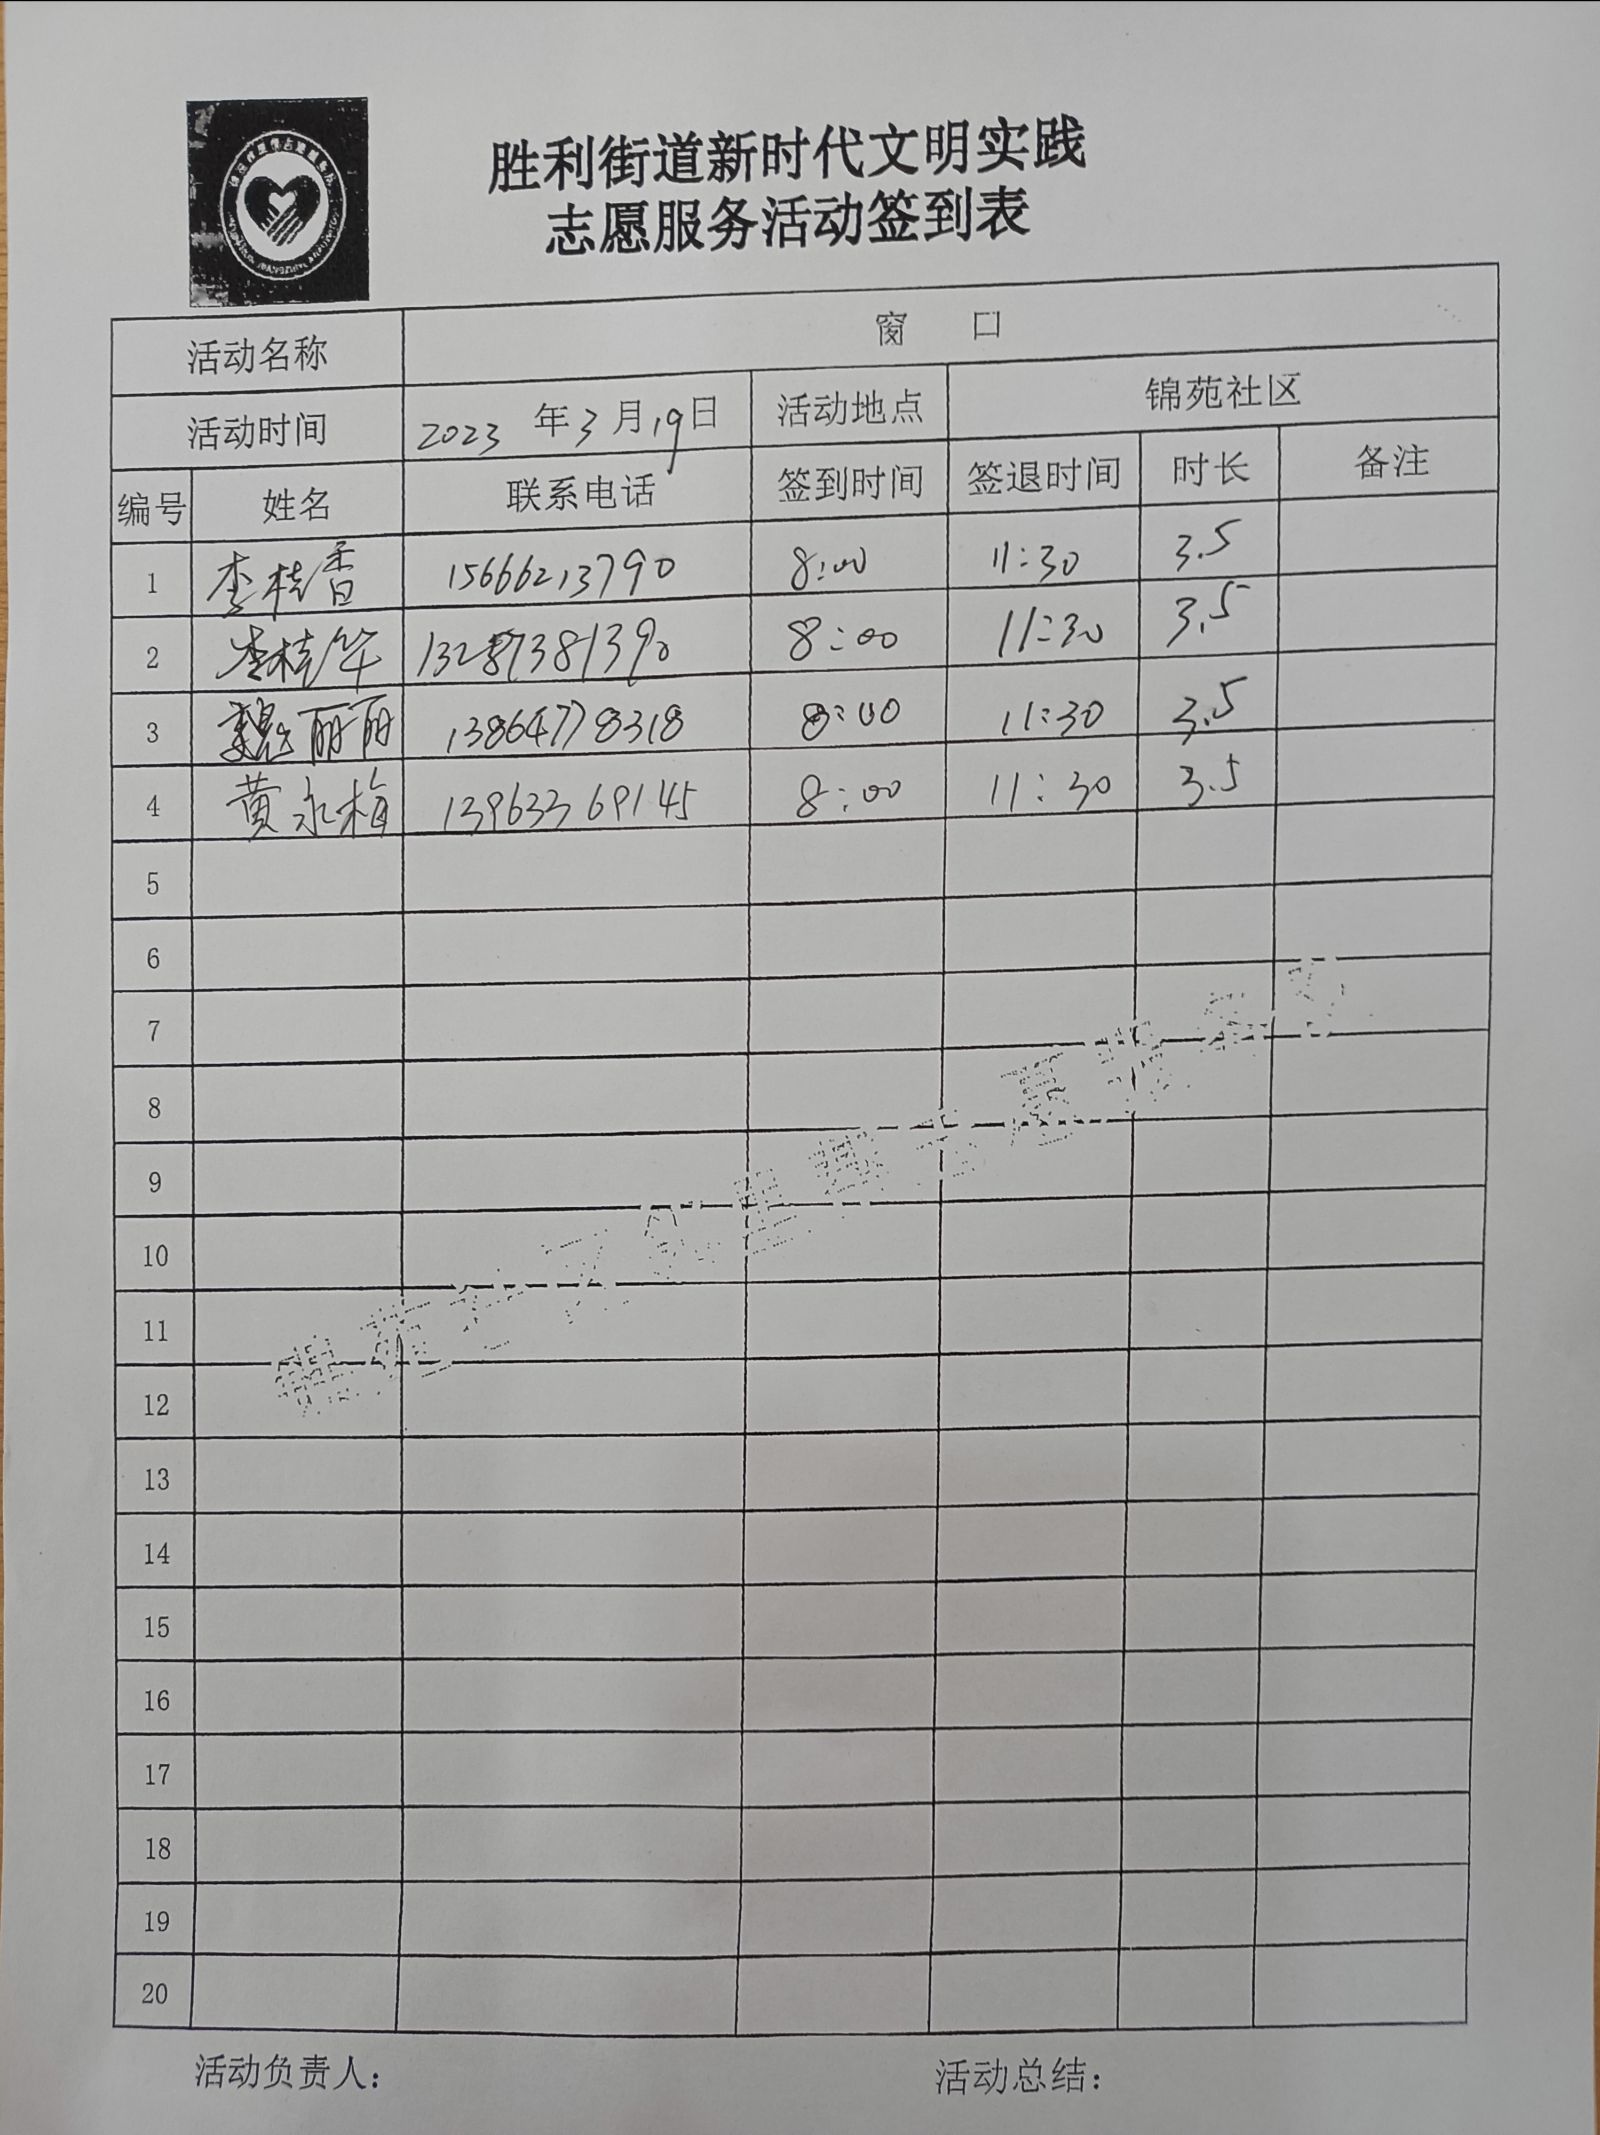 胜利街道新时代文明实践
志愿服务活动签到表
活动名称 窗 口
活动时间 2023 年3月19日 活动地点 锦苑社区
编号 姓名 联系电话 签到时间 签退时间 时长 备注
1 李桂香 15666213790 8:00 11:30 3.5
2 李桂华 13287381390 8:00 11:30 3.5
3 魏丽丽 13864778318 8:00 11:30 3.5
4 黄永梅 13963369145 8:00 11:30 3.5
5
6
7
8
9
10
11
12
13
14
15
16
17
18
19
20
活动负责人: 活动总结: